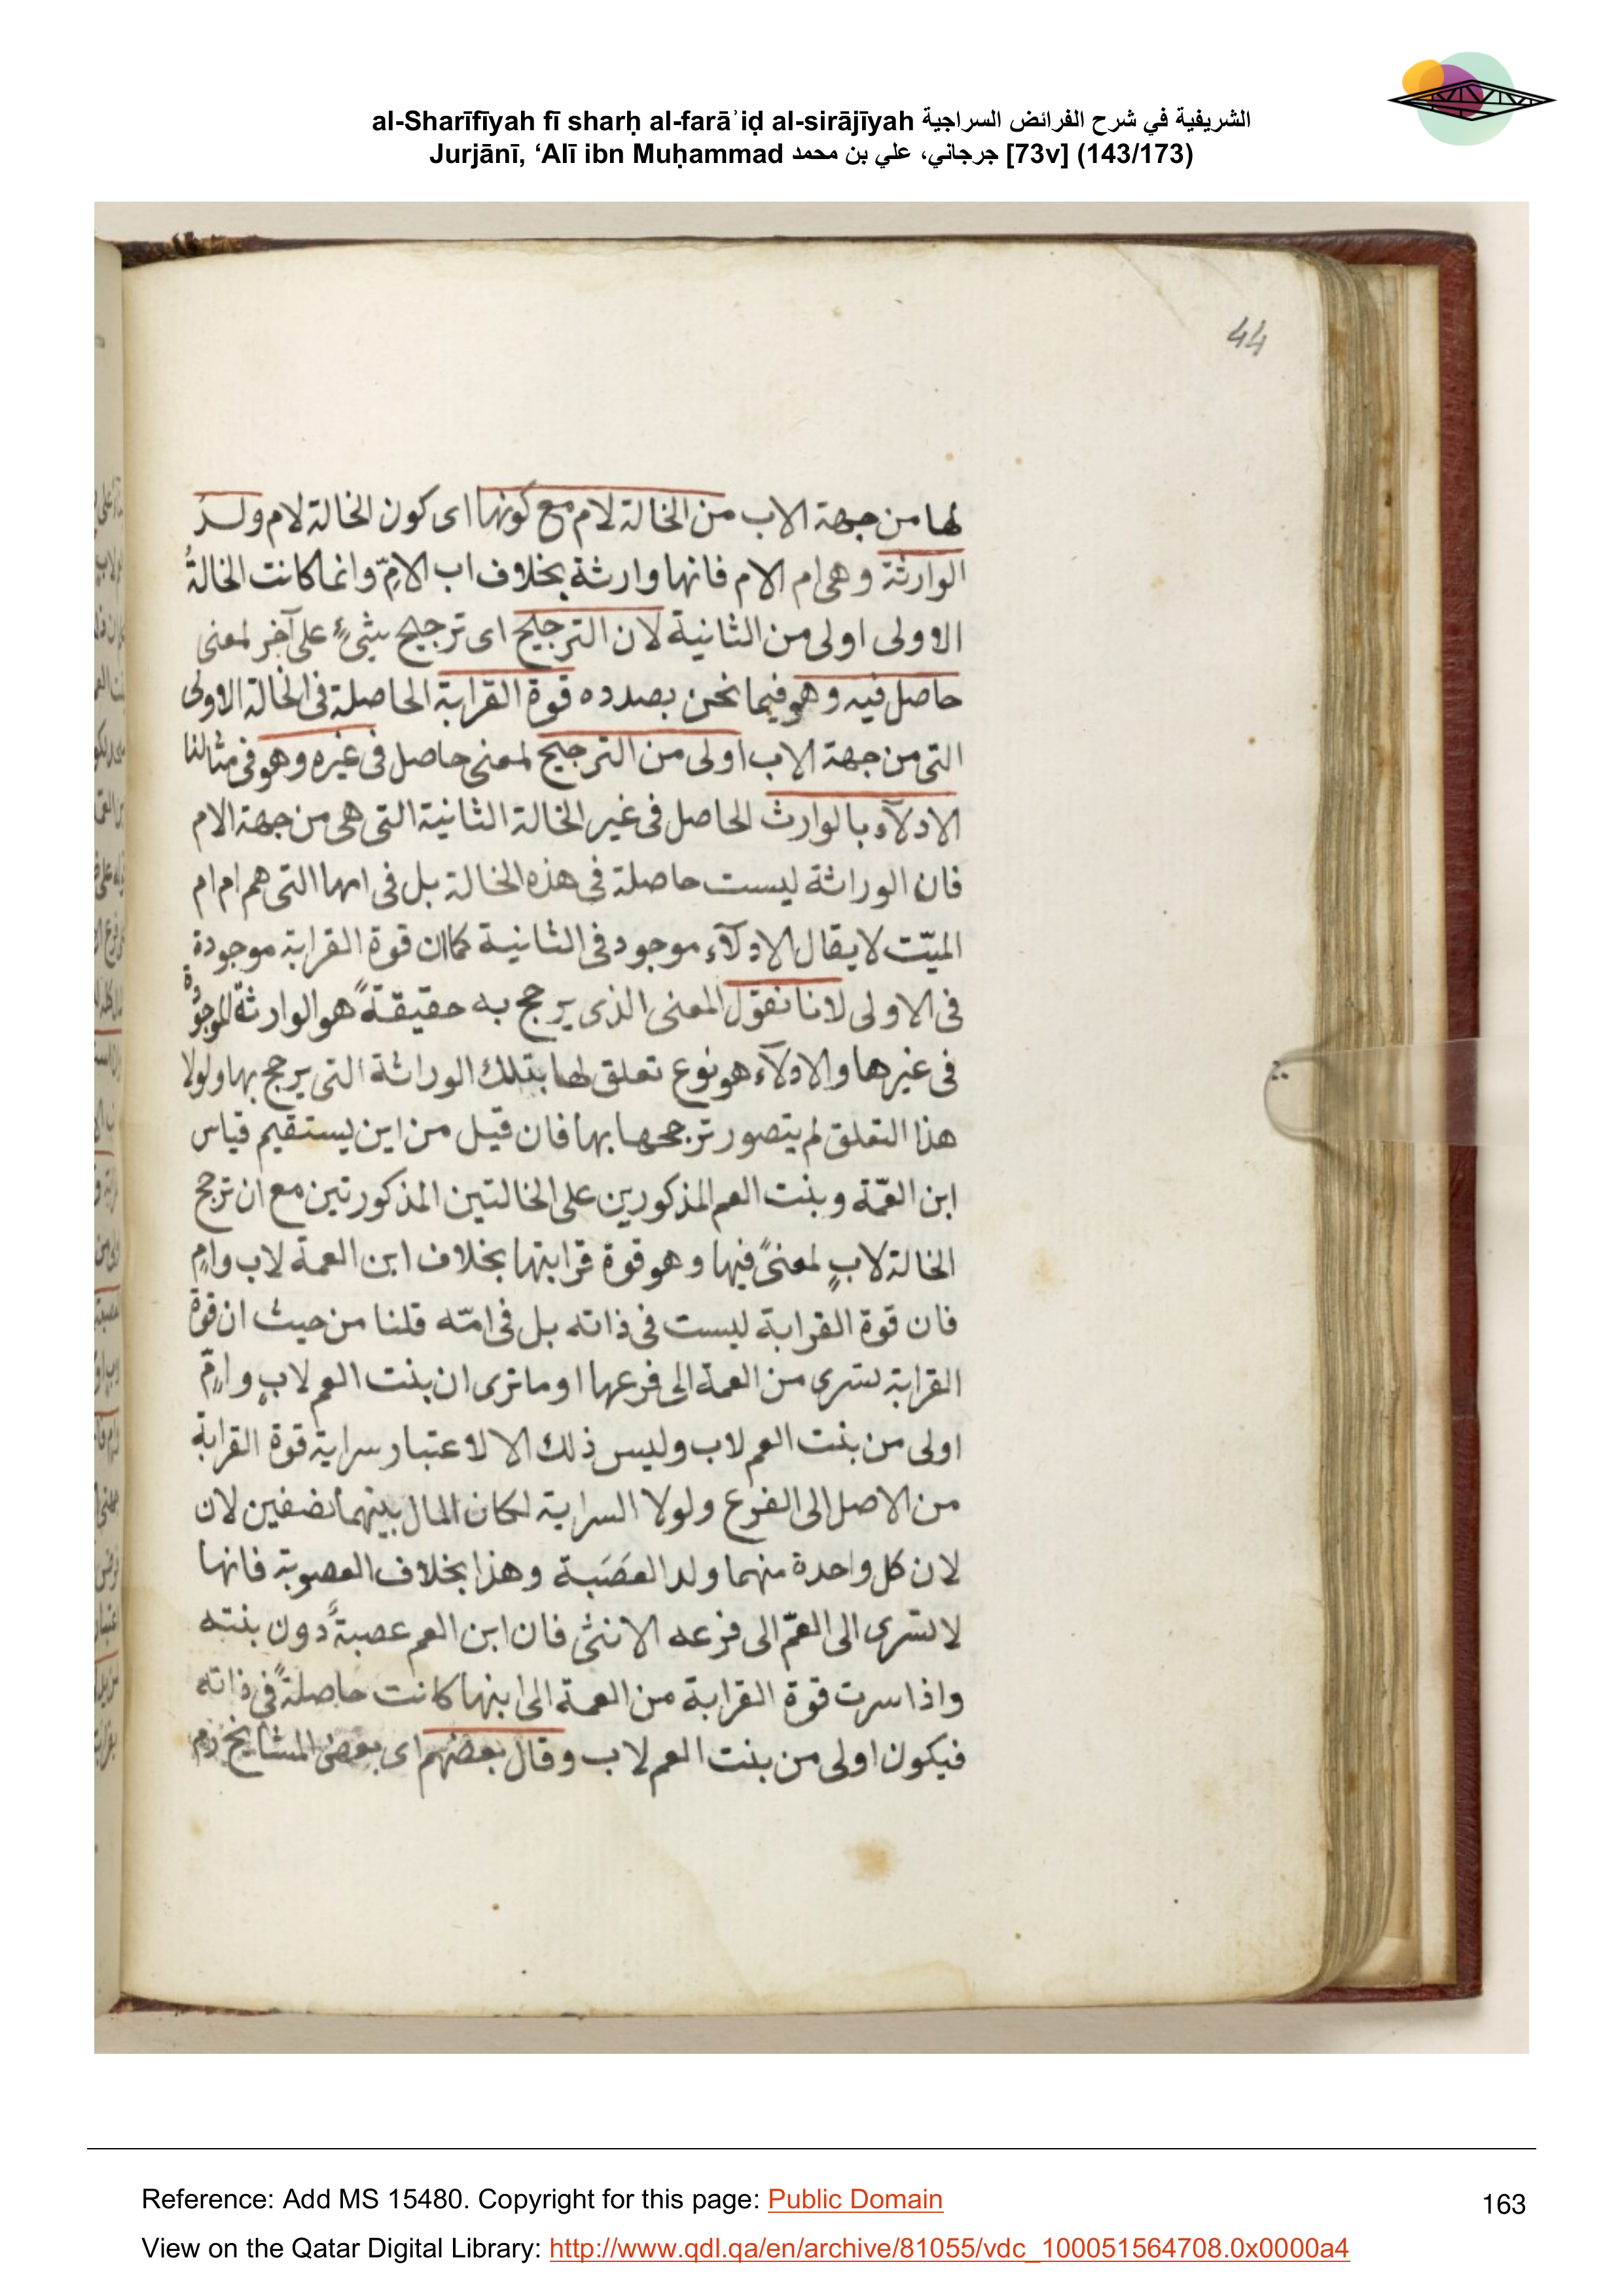 al-Sharīfīyah fī sharḥ al-farāʾiḍ al-sirājīyah الشريفية في شرح الفرائض السراجية
Jurjānī, ‘Alī ibn Muḥammad جرجاني، علي بن محمد [73v] (143/173)
44
لها من جهة الاب من الخالة لام مع كونها اى كون الخالة لام ولد
الوارثة وهى ام الام فانها وارثة بخلاف اب الامّ وانما كانت الخالةُ
الاولى اولى من الثانية لان الترجيح اى ترجيح شئٍ على آخر لمعنى
حاصل فيه وهو فيما نحن بصدده قوة القرابة الحاصلة فى الخالة الاولى
التى من جهة الاب اولى من الترجيح لمعنى حاصل فى غيره وهو فى مثالنا
الادلآء بالوارث الحاصل فى غير الخالة الثانية التى هى من جهة الام
فان الوراثة ليست حاصلة فى هذه الخالة بل فى امها التى هم ام ام
الميّت لا يقال الادلآء موجود فى الثانية كما ان قوة القرابة موجودة
فى الاولى لانا نقول المعنى الذى يرجح به حقيقةً هو الوارثة الموجودة
فى غيرها والادلآء هو نوع تعلق لها بتلك الوراثة التى يرجح بها ولولا
هذا التعلق لم يتصور ترجحها بها فان قيل من اين يستقيم قياس
ابن العمّة وبنت العم المذكورين على الخالتين المذكورتين مع ان ترجح
الخالة لابٍ لمعنىً فيها وهو قوة قرابتها بخلاف ابن العمة لاب وامٍ
فان قوة القرابة ليست فى ذاته بل فى امّه قلنا من حيث ان قوة
القرابة تسرى من العمة الى فرعها او ما ترى ان بنت العم لابٍ وامٍّ
اولى من بنت العم لاب وليس ذلك الا لاعتبار سراية قوة القرابة
من الاصل الى الفرع ولولا السراية لكان المال بينهما نصفين لان
لان كل واحدة منهما ولد العَصَبة وهذا بخلاف العصوبة فانها
لا تسرى الى العمّ الى فرعه الانثى فان ابن العم عصبةً دون بنته
واذا سرت قوة القرابة من العمة الى ابنها كانت حاصلةً فى ذاته
فيكون اولى من بنت العم لاب وقال بعضهم اى بعض المشايخ رحم
Reference: Add MS 15480. Copyright for this page: Public Domain
163
View on the Qatar Digital Library: http://www.qdl.qa/en/archive/81055/vdc_100051564708.0x0000a4